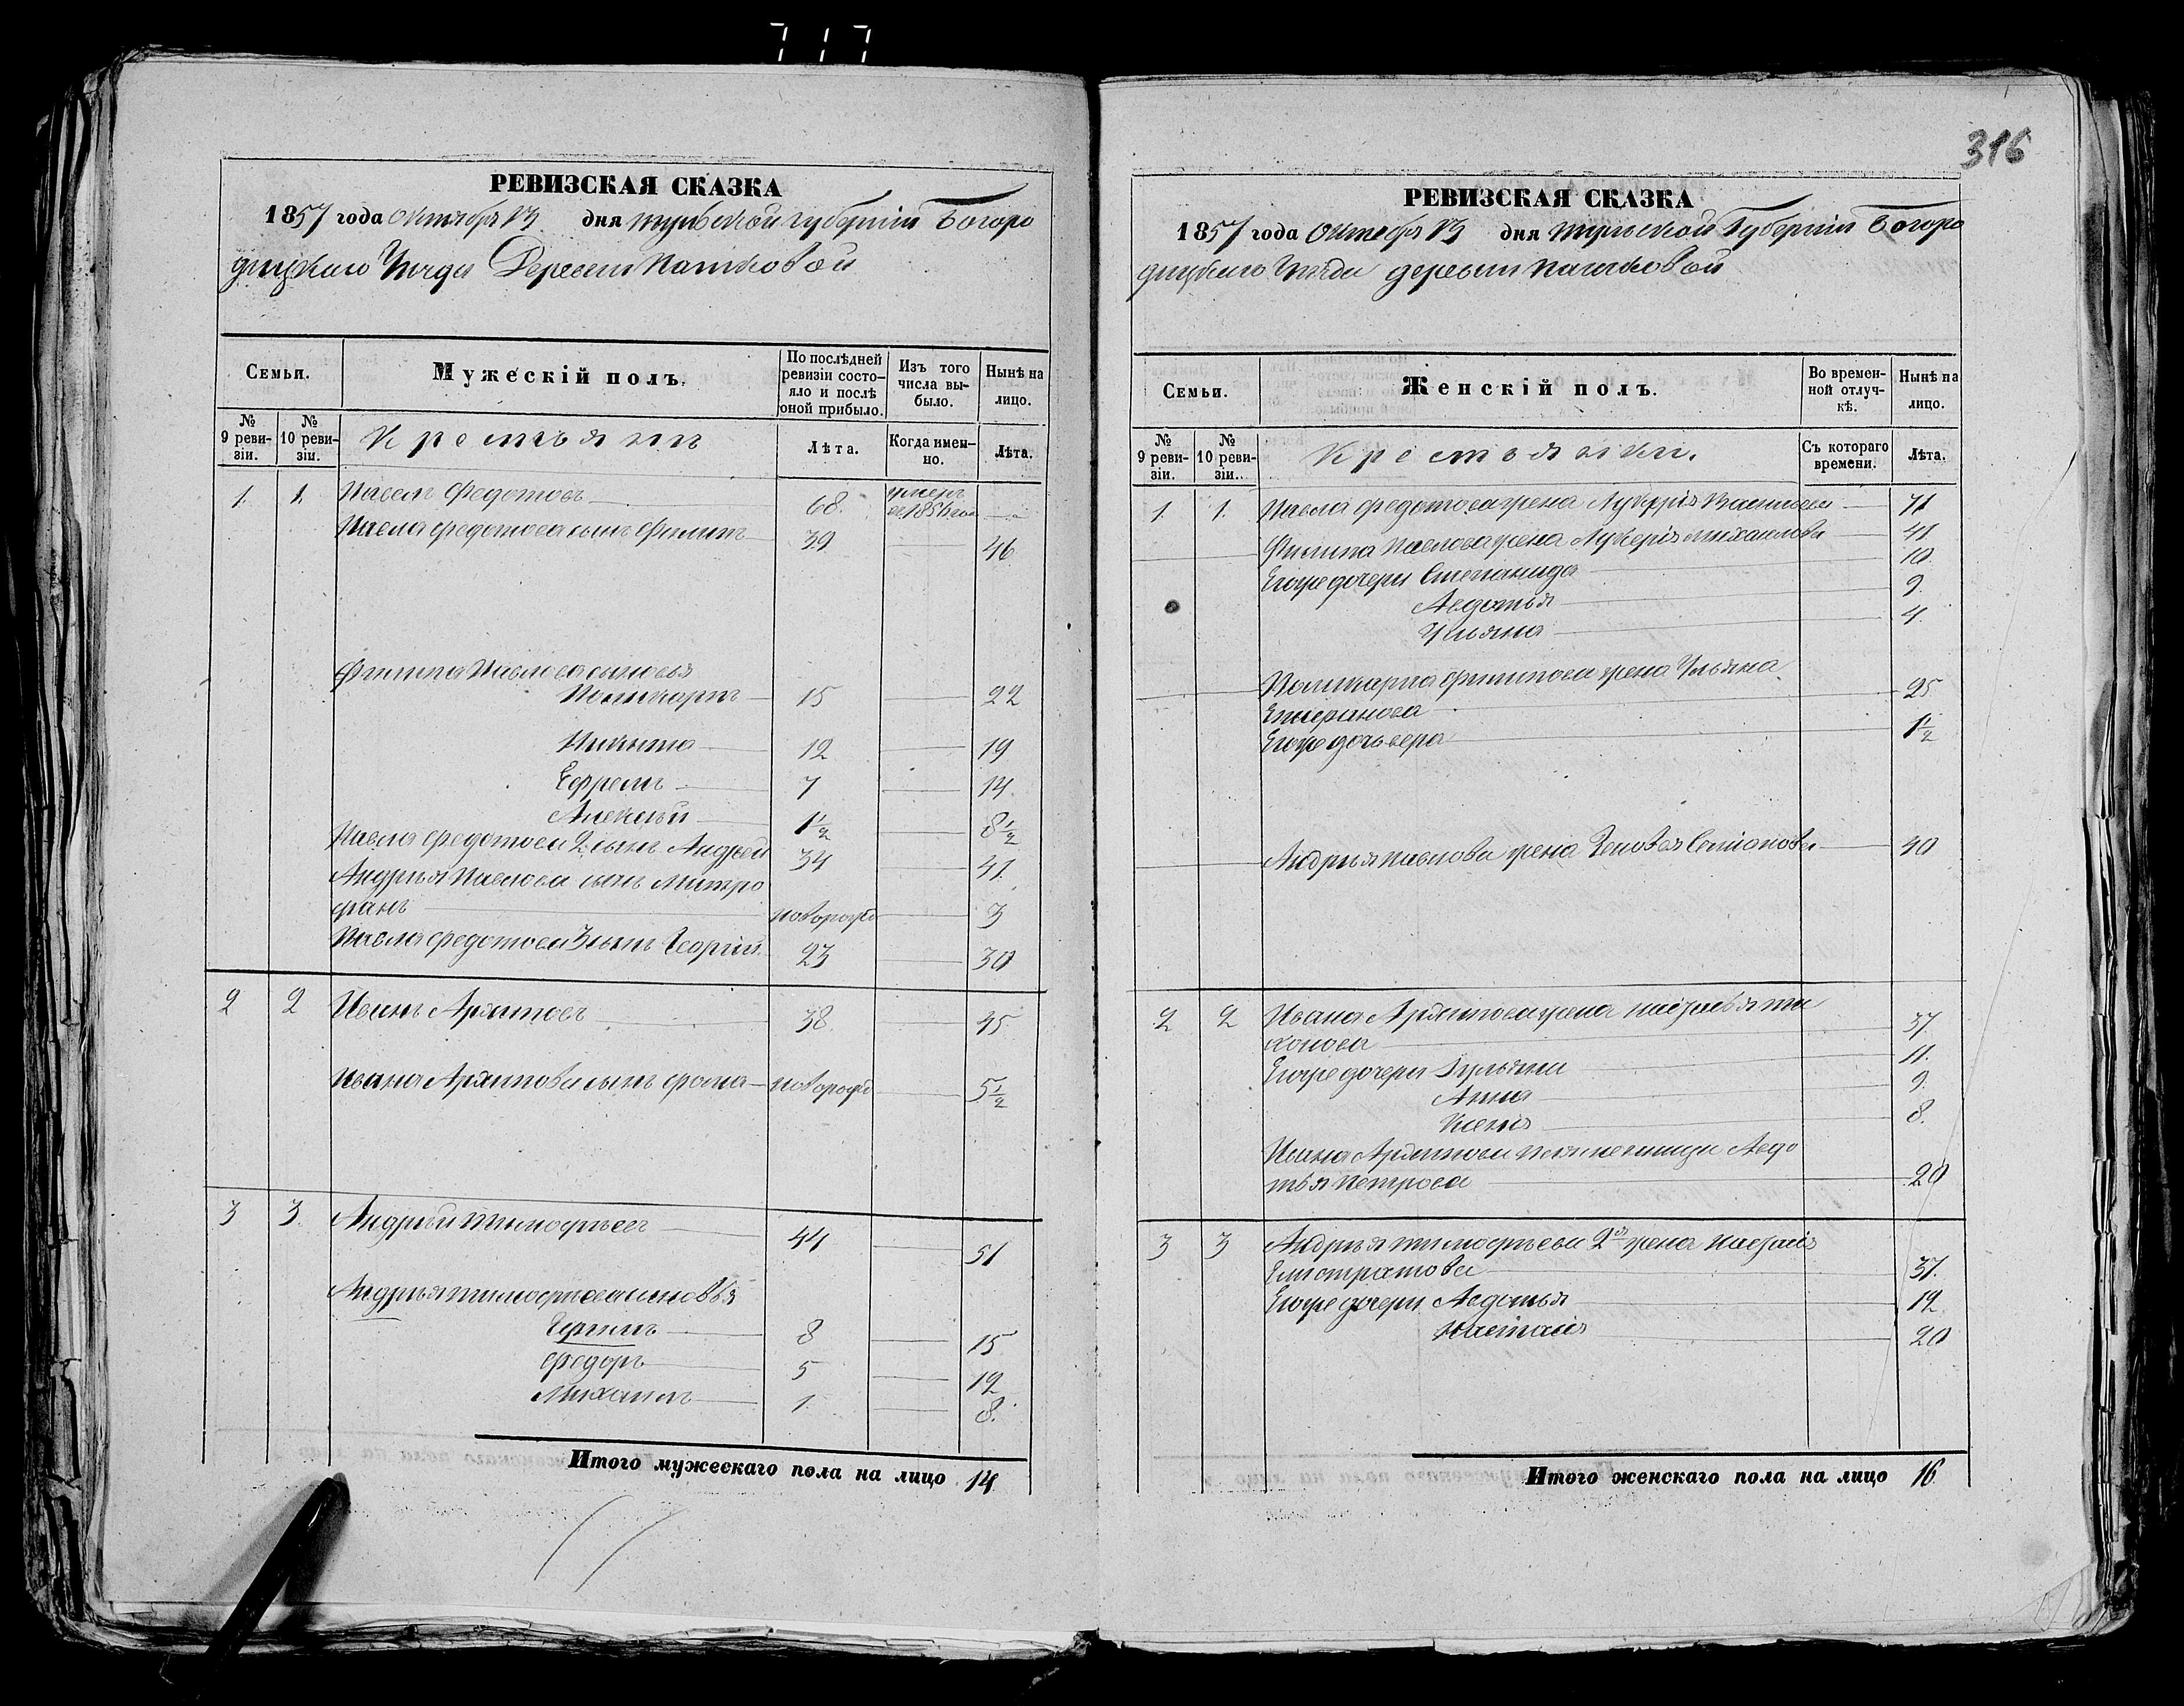 717
РЕВИЗСКАЯ СКАЗКА
1857 года октября 13 дня тульской губернии Богоро
дицкаго Уезда Деревни Пашковой
Семьи.
Мужескій полъ.
По послѣдней ревизіи состо-яло и послѣ оной прибыло.
Изъ того числа вы-было.
Нынѣ на лицо.
№ 9 реви-зіи.
№ 10 реви-зіи.
Крестьяни
Лѣта.
Когда имен-но.
Лѣта.
1. 1. Павелъ Федотовъ 68. умеръ в 1856 го
Павла федотова сынъ Филипъ 39 46
Филипа Павлова сыновья
Поликарпъ 15 22
Никита 12 19
Ефремъ 7 14.
Алексѣй 1 1/2 8 1/2
Павла федотова 2 сынъ Андрей 34 41.
Андрѣя Павлова сынъ Митро
фанъ новорож 3
Павла федотова 3 сынъ Георгій 23 30
2 2 Иванъ Архиповъ 38. 45
Ивана Архипова сынъ фома новорож 5 1/2
3 3. Андрѣй тимофѣевъ 44 51
Андрѣя тимофѣева сыновья
8 15
федоръ 5 12
Михаилъ 1. 8.
Итого мужескаго пола на лицо 14
316
РЕВИЗСКАЯ СКАЗКА
1857 года октября 13 дня тульской Губернии Богоро
дицкаго Уезда деревни пашковой
Семьи.
Женскій полъ.
Во времен-ной отлуч-кѣ.
Нынѣ на лицо.
№ 9 реви-зіи.
№ 10 реви-зіи.
Крестьянки.
Съ котораго времени.
Лѣта.
1. 1. Павла федотова жена Васильева 71
Филипа Павлова жена Лукерія михаилова 41
Егоже дочери Степанида 10
Авдотья 9.
Ульяна 4.
Поликарпа филипова жена Ульяна
25
Егоже дочь вера 1 1/2
Андрѣя павлова жена 40
2 2 Ивана Архипова жена ти
хонова 37
Егоже дочери 11.
Анна 9.
8.
Ивана Архипова племенница Авдо
тья Петрова 20
3 3 Андрѣя тимофѣева 2я жена
Елистратова 37.
Егоже дочери Авдотья 12
20
Итого женскаго пола на лицо 16